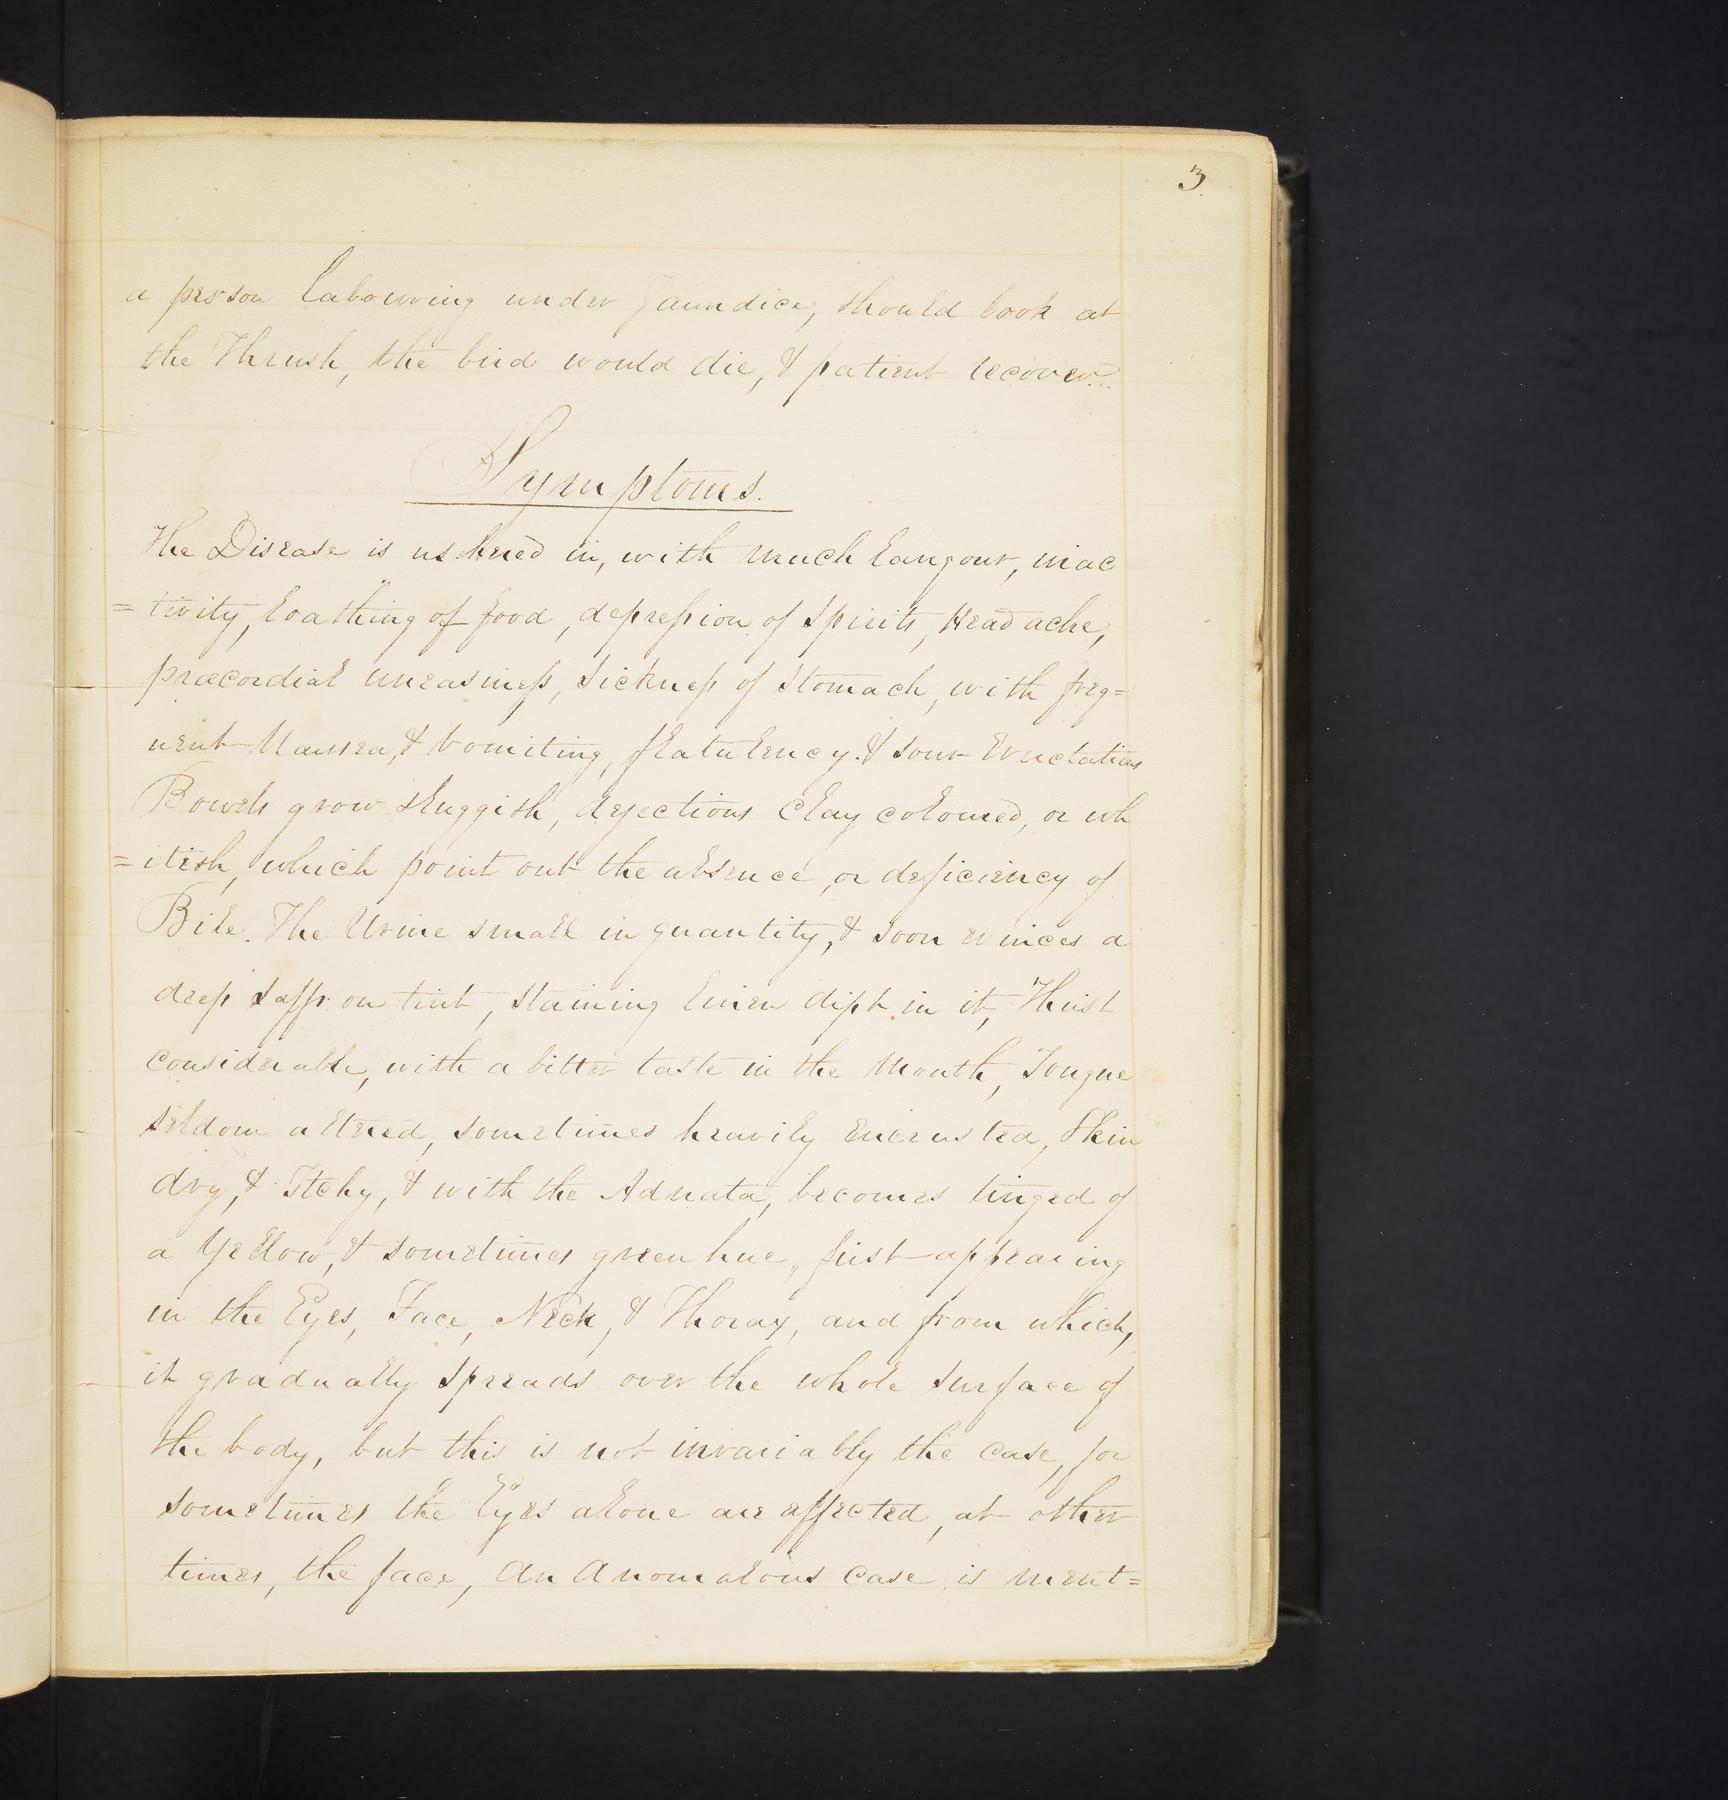 3
a person labouring under Jaundice, should look at
the Thrush, the bird would die, & patient recover.
Symptoms.
The Disease is ushered in, with much langour, inac
=tivity, loathing of food, depression of spirits, Head ache,
præcordial uneasiness, sickness of stomach, with freq=
uent Nausea, & vomiting, flatulency. & sour Eructations
Bowels grow sluggish, dejections clay coloured, or wh
=itish, which point out the absence, or deficiency of
Bile. The Urine small in quantity, & soon evinces a
deep saffron tint, staining linen dipt in it, Thirst
considerable, with a bitter taste in the Mouth, Tongue
seldom altered, sometimes heavily encrusted, Skin
dry, & Itchy, & with the Adnata, becomes tinged of
a Yellow, & sometimes green hue, first appearing
in the Eyes, Face, Neck, & Thorax, and from which,
it gradually spreads over the whole surface of
the body, but this is not invariably the case, for
sometimes the Eyes alone are affected, at other
times, the face, An Anomalous case is ment=